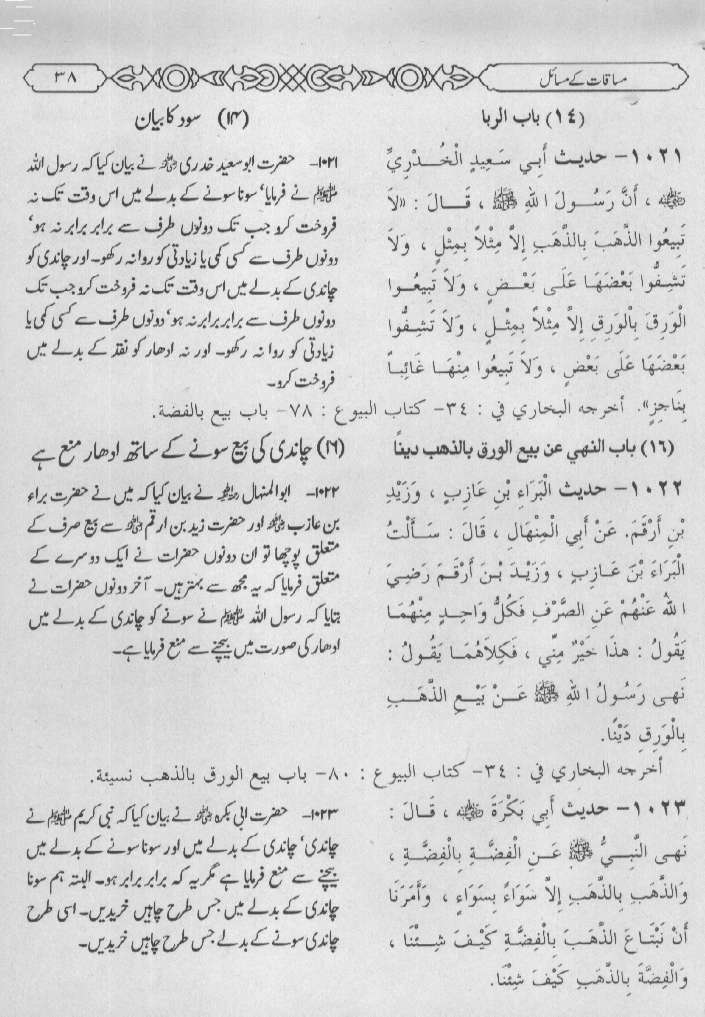 مساقات کے مسائل
۳۸
(١٤) باب الربا
١٠٢١– حديث أَبي سَعِيدٍ الْخُدْرِيِّ
ﷺ ، أَنَّ رَسُولَ اللهِ ﷺ ، قَالَ : «لاَ
تَبِيعُوا الذَّهَبَ بِالذَّهَبِ إِلاَّ مِثْلاً بِمِثْلٍ ، وَلاَ
تَشِفُّوا بَعْضَهَا عَلَى بَعْضٍ ، وَلاَ تَبِيعُوا
الْوَرِقَ بِالْوَرِقِ إِلاَّ مِثْلاً بِمِثْلٍ ، وَلاَ تَشِفُّوا
بَعْضَهَا عَلَى بَعْضٍ ، وَلاَ تَبِيعُوا مِنْهَا غَائِبًا
بِنَاجِزٍ». أخرجه البخاري في : ٣٤– كتاب البيوع : ٧٨– باب بيع بالفضة.
(۱۴) سود کا بیان
۱۰۲۱– حضرت ابو سعید خدری رضی اللہ عنہ نے بیان کیا کہ رسول اللہ
ﷺ نے فرمایا‘ سونا سونے کے بدلے میں اس وقت تک نہ
فروخت کرو جب تک دونوں طرف سے برابر برابر نہ ہو‘
دونوں طرف سے کسی کمی یا زیادتی کو روا نہ رکھو۔ اور چاندی کو
چاندی کے بدلے میں اس وقت تک نہ فروخت کرو جب تک
دونوں طرف سے برابر برابر نہ ہو‘ دونوں طرف سے کسی کمی یا
زیادتی کو روا نہ رکھو۔ اور نہ ادھار کو نقد کے بدلے میں
فروخت کرو۔
(١٦) باب النهي عن بيع الورق بالذهب دينًا
١٠٢٢– حديث الْبَرَاءِ بْنِ عَازِبٍ ، وَزَيْدِ
بْنِ أَرْقَمَ. عَنْ أَبِي الْمِنْهَالِ ، قَالَ : سَأَلْتُ
الْبَرَاءَ بْنَ عَازِبٍ ، وَزَيْدَ بْنَ أَرْقَمَ رَضِيَ
اللهُ عَنْهُمْ عَنِ الصَّرْفِ فَكُلُّ وَاحِدٍ مِنْهُمَا
يَقُولُ : هذَا خَيْرٌ مِنِّي ، فَكِلاَهُمَا يَقُولُ :
نَهى رَسُولُ اللهِ ﷺ عَنْ بَيْعِ الذَّهَبِ
بِالْوَرِقِ دَيْنًا.
(۱۶) چاندی کی بیع سونے کے ساتھ ادھار منع ہے
۱۰۲۲– ابوالمنہال رحمہ اللہ نے بیان کیا کہ میں نے حضرت براء
بن عازب رضی اللہ عنہ اور حضرت زید بن ارقم رضی اللہ عنہ سے بیع صرف کے
متعلق پوچھا تو ان دونوں حضرات نے ایک دوسرے کے
متعلق فرمایا کہ یہ مجھ سے بہتر ہیں۔ آخر دونوں حضرات نے
بتایا کہ رسول اللہ ﷺ نے سونے کو چاندی کے بدلے میں
ادھار کی صورت میں بیچنے سے منع فرمایا ہے۔
أخرجه البخاري في : ٣٤– كتاب البيوع : ٨٠– باب بيع الورق بالذهب نسيئة.
١٠٢٣– حديث أَبِي بَكْرَةَ رضی اللہ عنہ ، قَالَ :
نَهى النَّبِيُّ ﷺ عَنِ الْفِضَّةِ بِالْفِضَّةِ ،
وَالذَّهَبِ بِالذَّهَبِ إِلاَّ سَوَاءً بِسَوَاءٍ ، وَأَمَرَنَا
أَنْ نَبْتَاعَ الذَّهَبَ بِالْفِضَّةِ كَيْفَ شِئْنَا ،
وَالْفِضَّةَ بِالذَّهَبِ كَيْفَ شِئْنَا.
۱۰۲۳– حضرت ابی بکرہ رضی اللہ عنہ نے بیان کیا کہ نبی کریم ﷺ نے
چاندی‘ چاندی کے بدلے میں اور سونا سونے کے بدلے میں
بیچنے سے منع فرمایا ہے مگر یہ کہ برابر برابر ہو۔ البتہ ہم سونا
چاندی کے بدلے میں جس طرح چاہیں خریدیں۔ اسی طرح
چاندی سونے کے بدلے جس طرح چاہیں خریدیں۔